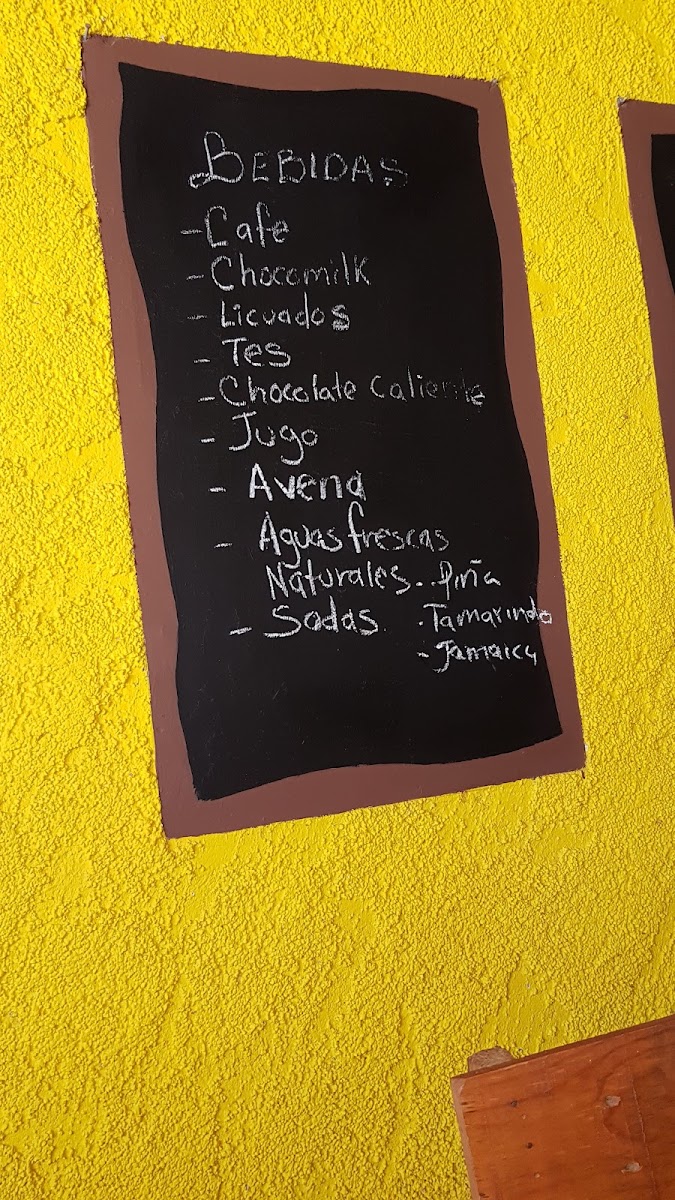 BEBIDAS
- Cafe
- Chocomilk
- Licuados
- Tes
- Chocolate Caliente
- Jugo
- Avena
- Aguas frescas
Naturales.. Piña
- Sodas . Tamarindo
- Jamaica